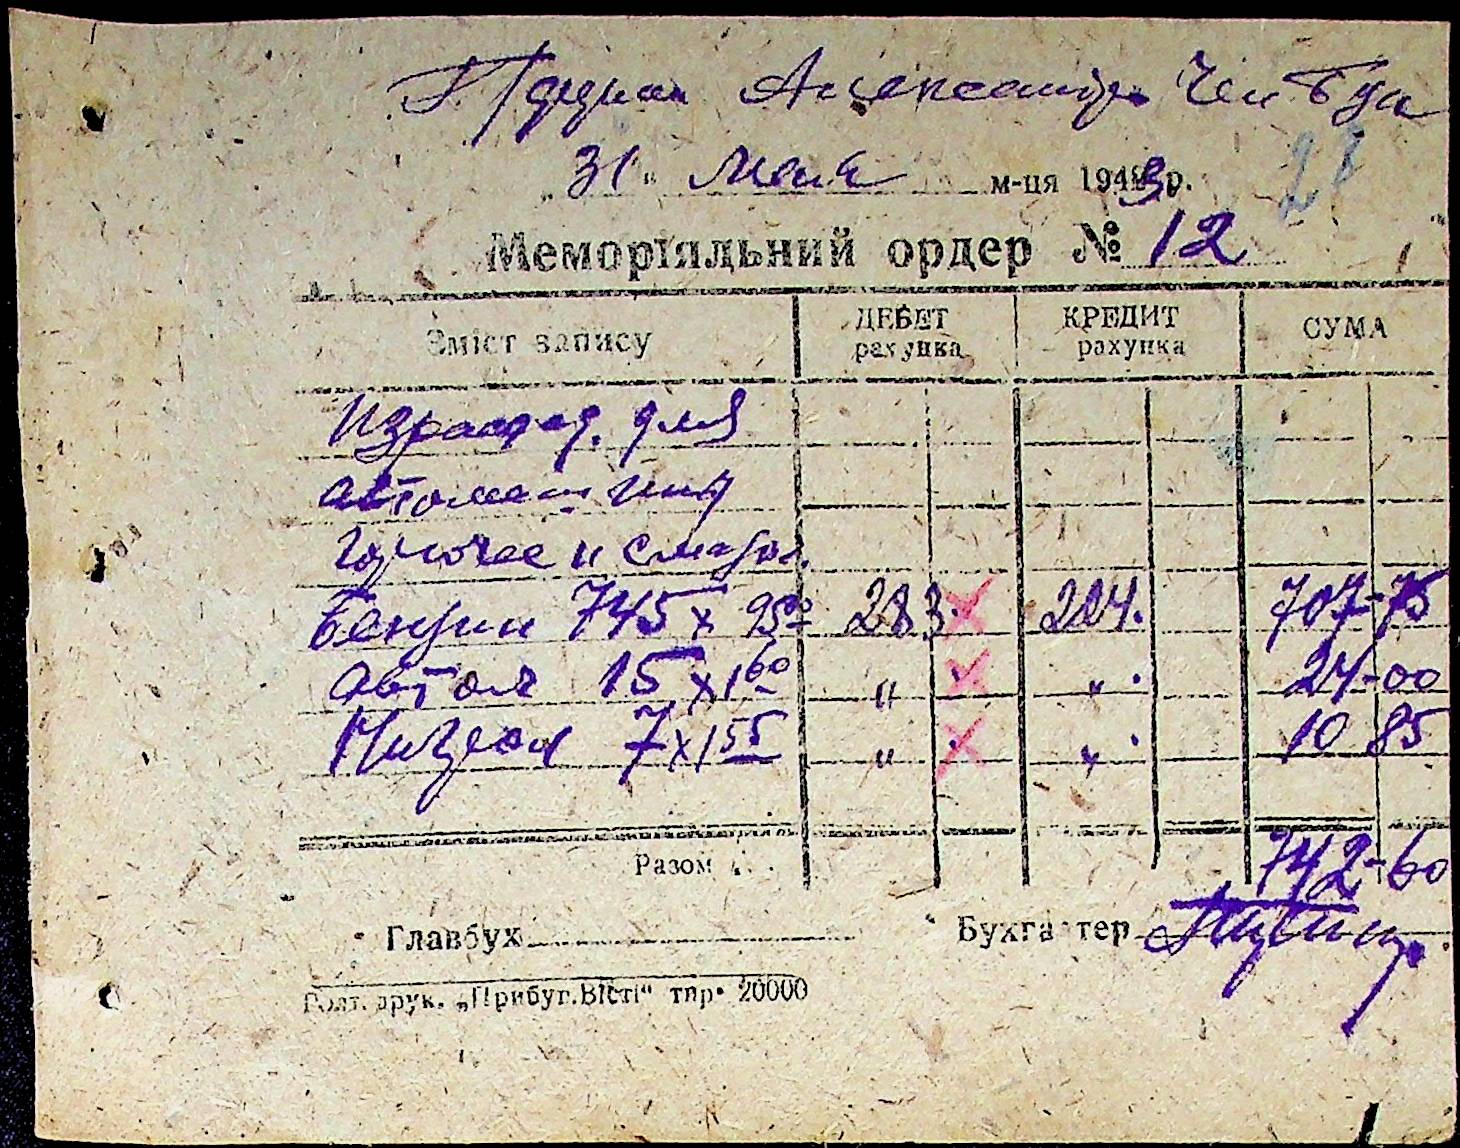 28
"31" мая м-ця 1943 р.
Меморіяльний ордер № 12
Зміст запису ДЕБЕТ рахунка КРЕДИТ рахунка СУМА
Израсход. для
автомашины
горючее и смазоч.
Бензин 745 х 95 283. 224. 707-75
Автол 15 х 1 60 " " 24-00
Нигрол 7 х 1 55 " " 10 85
Разом . . . 742-60
Главбух Бухгалтер
Полт. друк. „Прибуг.Вісті“ тир. 20000